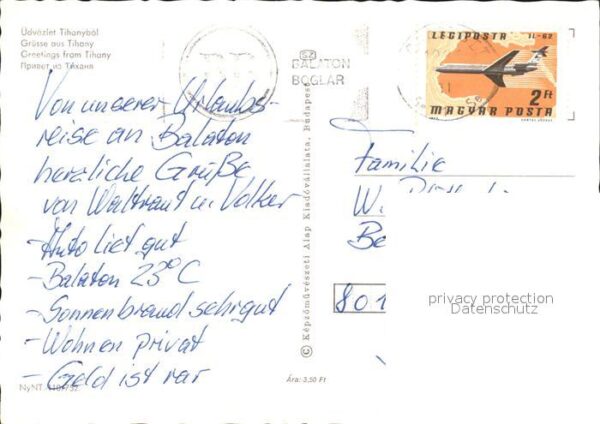 Üdvözlet Tihanyból
Grüsse aus Tihany
Greetings from Tihany
Привет из Тихани
BALATON
BOGLÁR
LÉGIPOSTA IL-62
2 Ft
MAGYAR POSTA
Von unserer Urlaubs-
reise an Balaton
herzliche Grüße
von Waltraut u. Volker
- Auto lief gut
- Balaton 23°C
- Sonnenbrand sehr gut
- Wohnen privat
- Geld ist rar
© Képzőművészeti Alap Kiadóvállalata, Budapest
Familie
W.
Be
801
privacy protection
Datenschutz
Ára: 3,50 Ft
NyNT